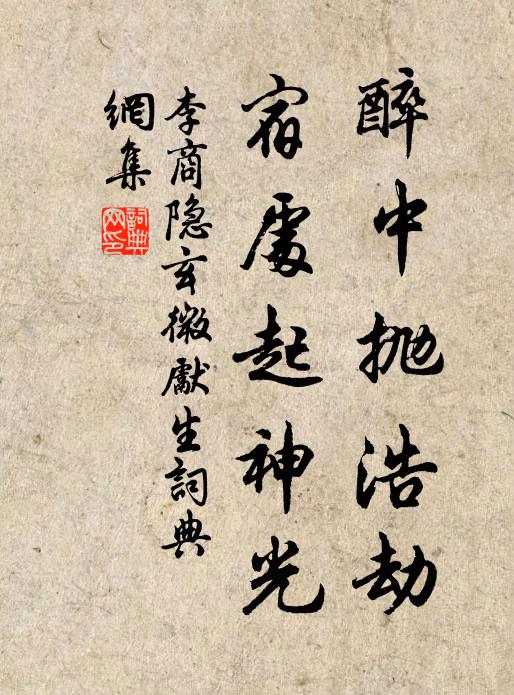 醉中抛浩劫
宿處起神光
李商隐玄微獻生詞典
網集
詞典
网印